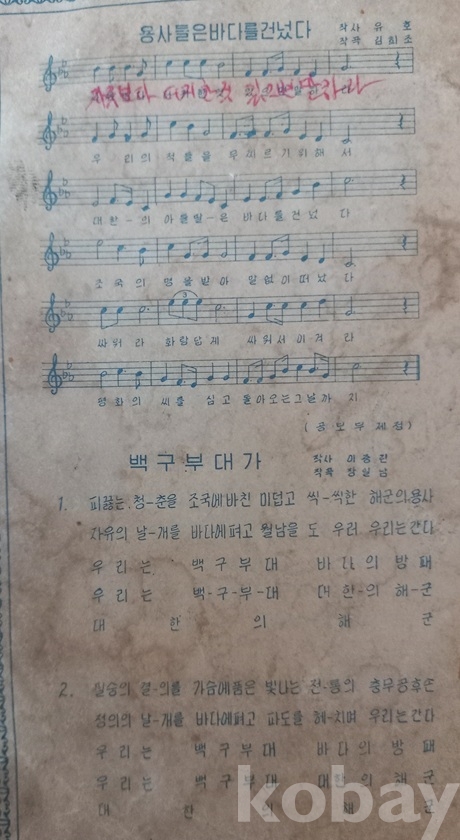 용사들은바다를건넜다
작사 유 호
작곡 김희조
우 리의 적들을 무찌르기위해 서
대한-의 아들들-은 바다를건넜 다
조국의 명을받아 말없이떠났 다
싸워라 화랑답게 싸워서이겨 라
평화의 씨를 심고 돌아오는그날까 지
(공보부제정)
백구부대가
작사 이종진
작곡 장일남
1. 피끓는 청-춘을 조국에바친 미덥고 씩-씩한 해군의용사
자유의 날-개를 바다에펴고 월남을 도우러 우리는간다
우리는 백구부대 바다의방패
우리는 백-구-부-대 대한-의해-군
대 한 의 해 군
2. 필승의 결-의를 가슴에품은 빛나는 전-통의 충무공후손
정의의 날-개를 바다에펴고 파도를 헤-치며 우리는간다
우리는 백구부대 바다의방패
우리는 백구부대 대한의해군
대 한 의 해 군
kobay